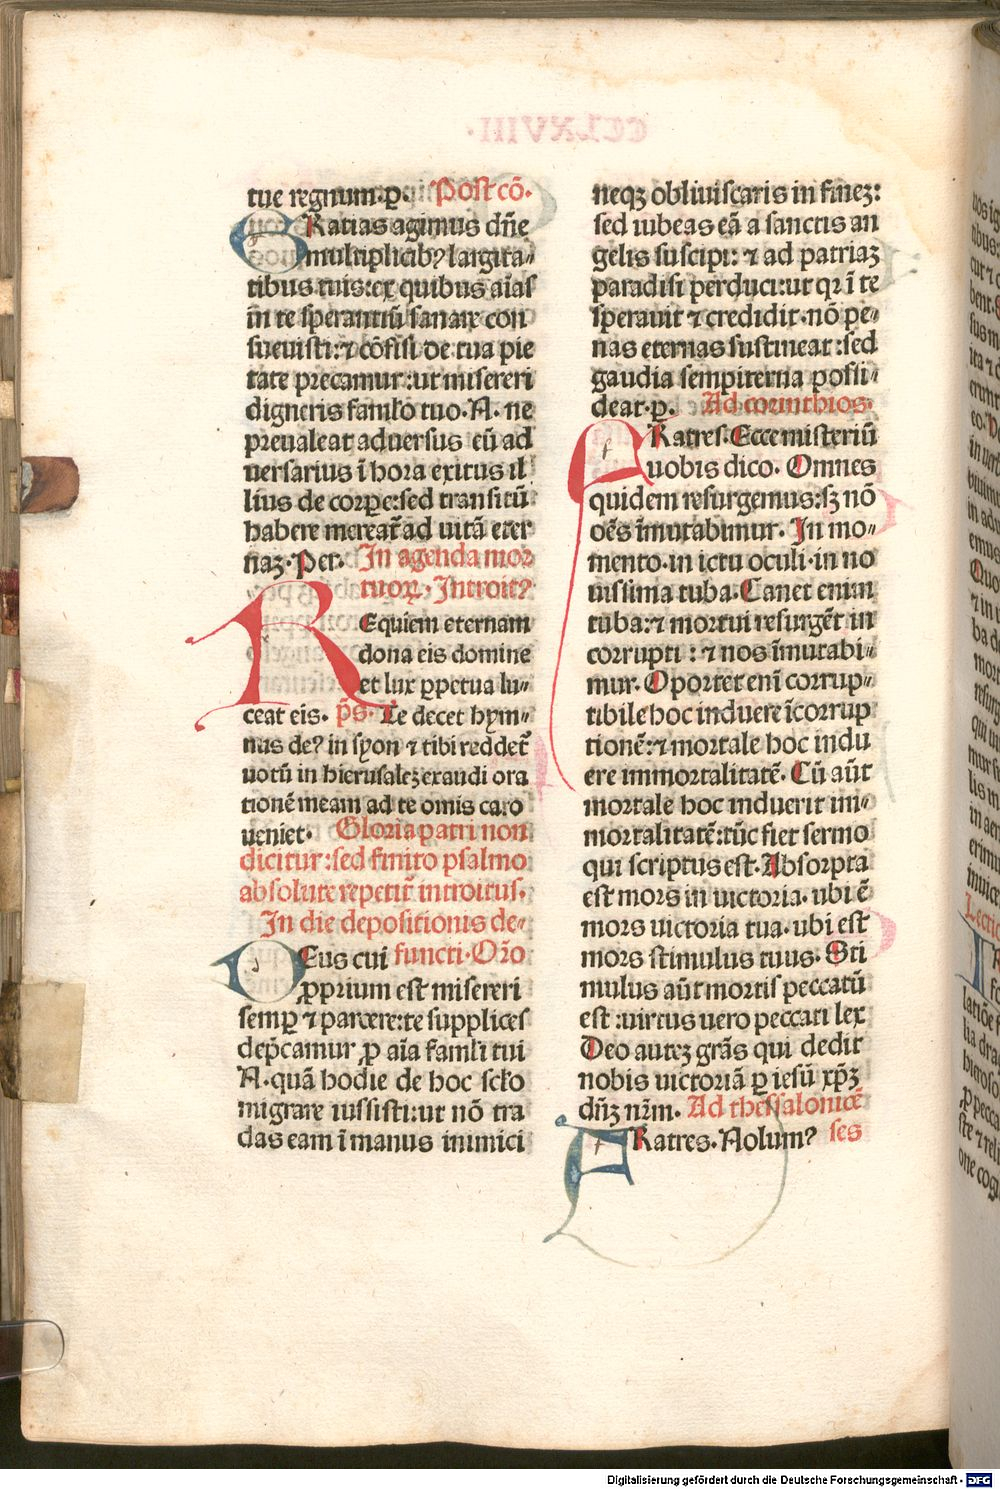 tue regnum·ꝑ. Post cō.
GRatias agimus dn̄e
multiplicibꝰ largita⸗
tibus tuis:ex quibus aīas
in te sperantiū sanare con
sueuisti:⁊ cōfisi de tua pie
tate precamur:ut misereri
digneris famło tuo·N. ne
preualeat aduersus eū ad
uersarius ī hora exitus il
lius de corpe:sed transitū
habere mereat̄ ad uitā eter
naꝫ·Per. In agenda mor
tuoꝝ. Introitꝰ
REquiem eternam
dona eis domine
et lux ꝑpetua lu⸗
ceat eis. p̄s. Te decet hym⸗
nus deꝰ in syon ⁊ tibi reddet̄
uotū in hierusaleꝫ exaudi ora
tionē meam ad te omis caro
ueniet. Gloria patri non
dicitur:sed finito psalmo
absolute repetit̄ introitus.
In die depositionis de⸗
DEus cui functi·Oro
ꝓprium est misereri
semꝑ ⁊ parcere:te supplices
dep̄camur ꝓ aīa famłi tui
N·quā hodie de hoc scło
migrare iussisti:ut nō tra
das eam ī manus inimici
neqꝫ obliuiscaris in fineꝫ:
sed iubeas eā a sanctis an
gelis suscipi:⁊ ad patriaꝫ
paradisi perduci:ut qꝛ ī te
sperauit ⁊ credidit·nō pe⸗
nas eternas sustineat:sed
gaudia sempiterna possi⸗
deat·ꝑ. Ad corinthios.
FRatres·Ecce misteriū
uobis dico. Omnes
quidem resurgemus:sꝫ nō
oēs īmutabimur. In mo⸗
mento·in ictu oculi·in no
uissima tuba·Canet enim
tuba:⁊ mortui resurgēt in
corrupti:⁊ nos īmutabi⸗
mur. Oportet enī corrup⸗
tibile hoc induere īcorrup
tionē:⁊ mortale hoc indu
ere immortalitatē. Cū aūt
mortale hoc induerit im⸗
mortalitatē:tūc fiet sermo
qui scriptus est·Absorpta
est mors in uictoria. ubi ē
mors uictoria tua. ubi est
mors stimulus tuus. Sti
mulus aūt mortis peccatū
est:uirtus uero peccati lex
Deo auteꝫ grās qui dedit
nobis uictoriā ꝑ iesū xp̄ꝫ
dn̄ꝫ nr̄m. Ad thessalonicē
FRatres. Nolumꝰ ses
CCLXVIII.
Digitalisierung gefördert durch die Deutsche Forschungsgemeinschaft - DFG